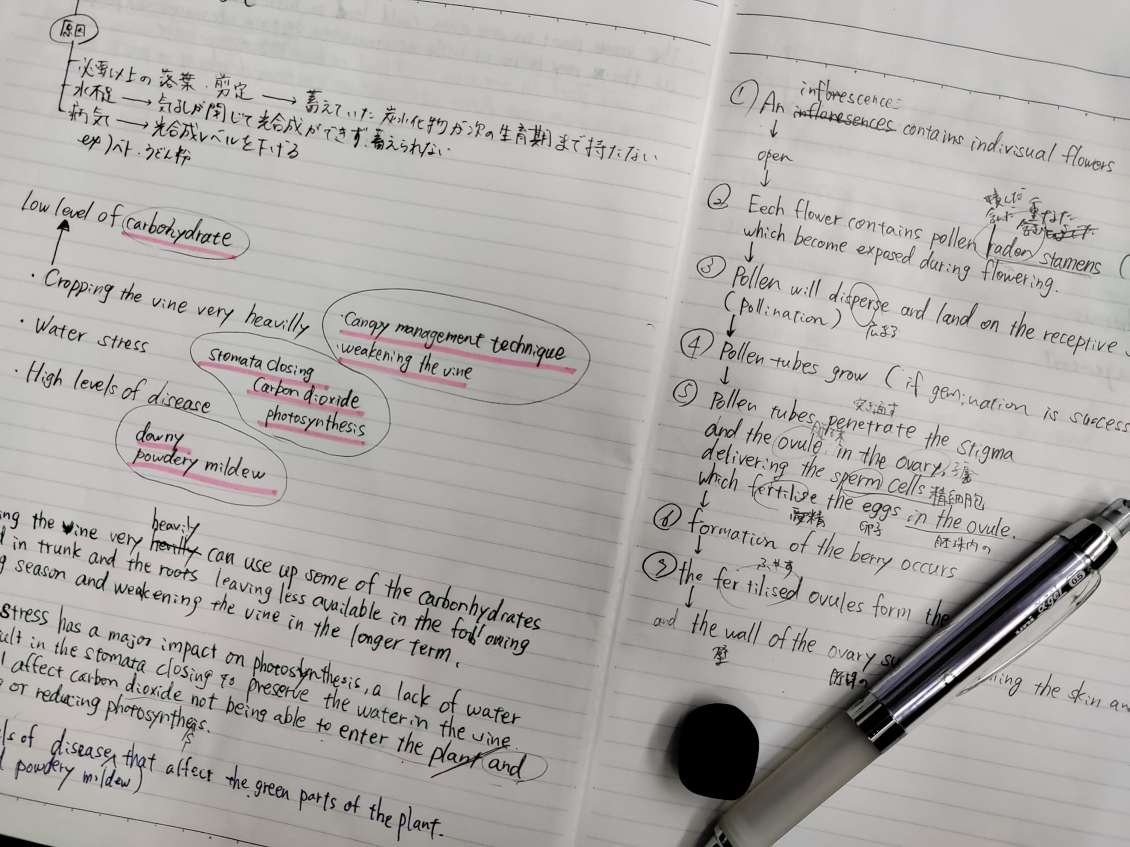 原因
必要以上の落葉・剪定 → 蓄えていた炭水化物が次の生育期まで持たない
水不足 → 気孔が閉じて光合成ができず、蓄えられない
病気 → 光合成レベルを下げる
ex)ベト・うどん粉
Low level of carbohydrate
・Cropping the vine very heavilly
・Water stress
・High levels of disease
・Canopy management technique
・weakening the vine
stomata closing
Carbon dioxide
photosynthesis
downy
powdery mildew
ing the vine very heavily can use up some of the carbonhydrates
d in trunk and the roots leaving less available in the following
g season and weakening the vine in the longer term.
stress has a major impact on photosynthesis, a lack of water
ult in the stomata closing to preserve the water in the vine.
l affect carbon dioxide not being able to enter the plant and
g or reducing photosynthesis.
ls of disease that affect the green parts of the plant.
d powdery mildew)
① An inflorescences contains indivisual flowers
↓
open
↓
② Eech flower contains pollen laden stamens (
which become exposed during flowering.
↓
③ Pollen will disperse and land on the receptive
(pollination) 広まる
↓
④ Pollen tubes grow (if gemination is success
↓
⑤ Pollen tubes penetrate the stigma
and the ovule in the ovary, 子房
delivering the sperm cells 精細胞
which fertilise the eggs in the ovule.
受精 卵子 胚珠内の
↓
⑥ formation of the berry occurs
↓
⑦ the fertilised ovules form the
↓
and the wall of the ovary su
壁 ming the skin and
uni α-gel 0.5